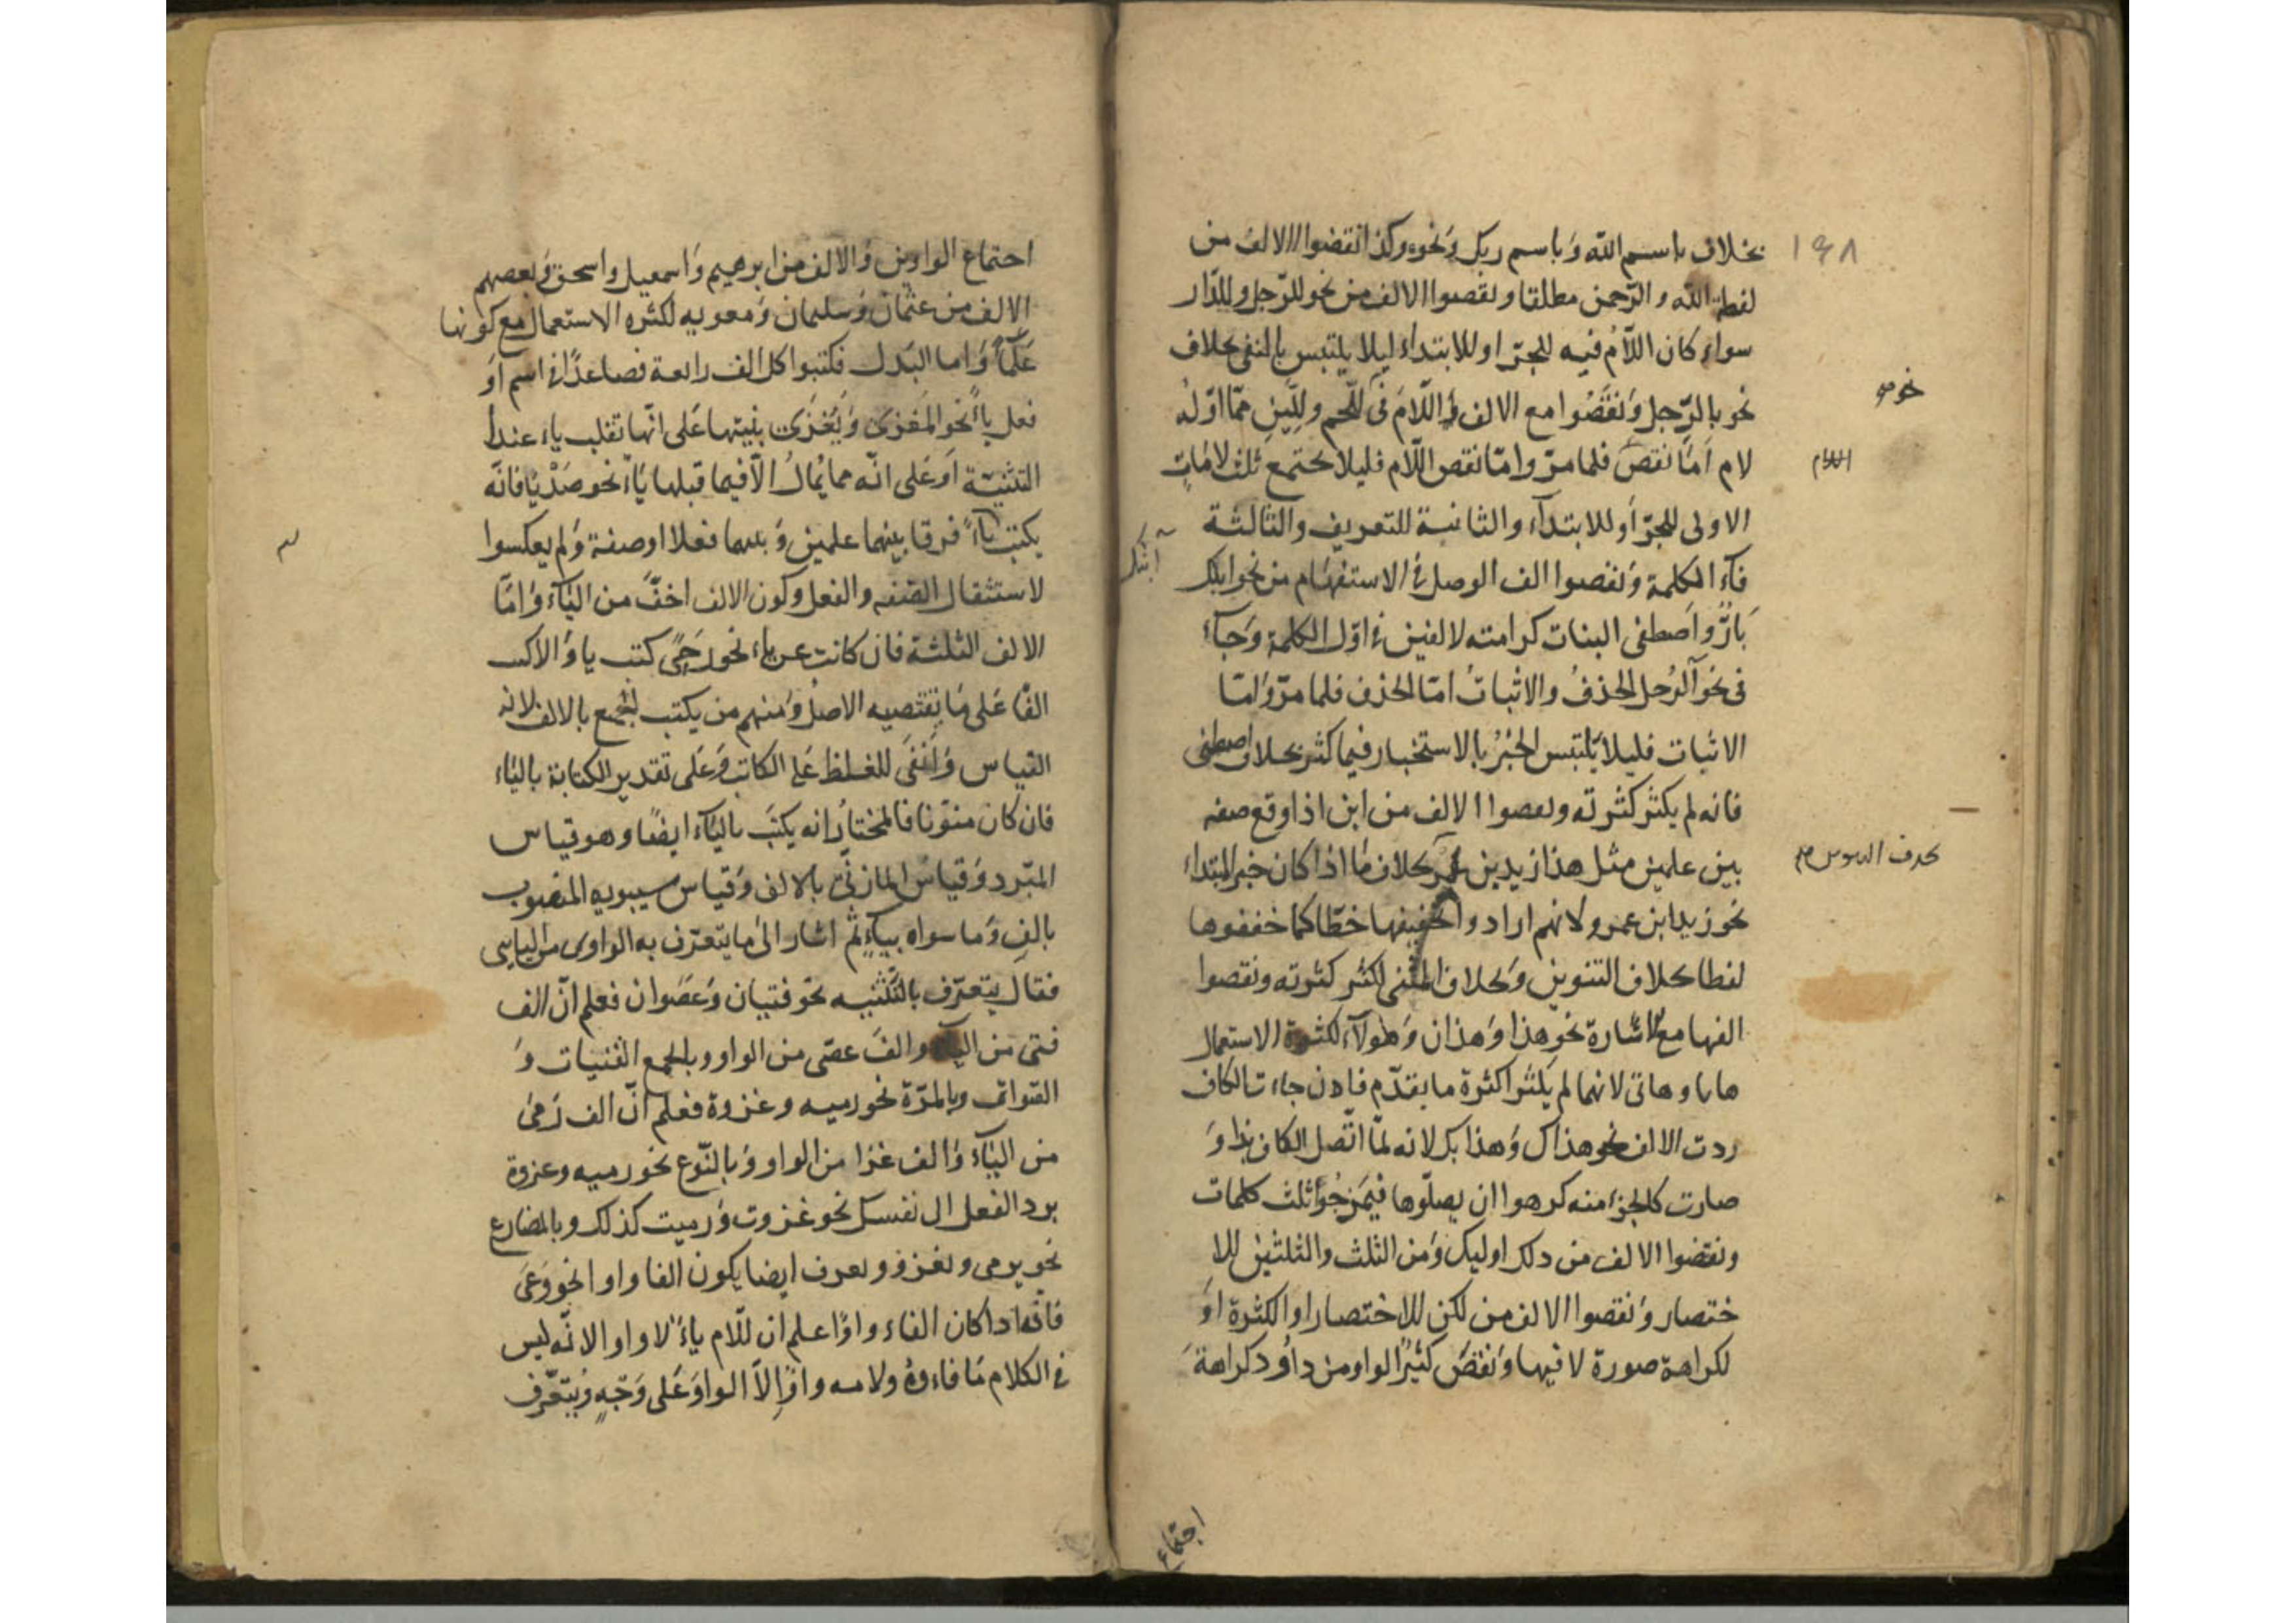 ١٩٨
بخلاف باسم الله وَباسم ربك وَنحوه وكذا نقضوا الالف من
لفظة الله والرّحمن مطلقا ونقصوا الالف من نحو للرّجل وللدّار
سواء كان اللّام فيه للجرّ او للابتداء ليلا يلتبس بالنفى بخلاف
نحو بالرّجل وَنقصُوا مع الالف وَاللّامَ فى للّحم وللّبن ممّا اوّله
لام امّا نقصَ فلما مرّ وامّا نقص اللّام فليلا يجتمع ثلث لامَاتٍ
اللام
الاولى للجرّ أو للابتدآء والثانية للتعريف والثالثة
فآء الكلمة وَنقصوا الف الوصل فى الاستفهام من نحو ابنك
آبنك
بَارٌّ وأَصطفى البنات كرامته لالفين فى اوّل الكلمة وَجآء
فى نحو آلرّجل الحذفُ والاثباتُ امّا الحذف فلما مرّ وَامّا
الاثبات فليلا يَلتبس الخبرُ بالاستخبار فيما كثر بخلاف اصطفى
فانه لم يكثر كثرته ونقصوا الالف من ابن اذا وقع صفه
بين علمين مثل هذا زيد بن عمرو بخلاف مَا اذا كان خبر المبتداء
نحو زيد ابن عمرو لانهم ارادوا تخفيفها خطّا كما خففوها
لفظا بحذف التنوين وَبخلاف المثنى لكثر كثرته ونقصوا
الفها مع الاشارة نحو هذا وَهذان وَهٰولآء لكثرة الاستعمال
هاتا وهاتى لانهما لم يَكثرا كثرة ما يقدّم فان جاءت الكاف
ردت الالف نحو هذاك وَهذا بك لانه لمّا اتّصل الكاف بذا وَ
صارت كالجزء منه كرهوا ان يصلّوها فيمزجُوا ثلث كلمات
ونقضوا الالف من ذلك اوليك وَمن الثلث والثلثين للا
ختصار وَنقصوا الالف من لكن للاختصار او الكثرة اوَ
لكراهة صورة لا فيها وَنقصَ كثيرٌ الواو من داوُد كراهةَ
اجتماع
احتماع الواوين وَالالف من ابرهيم وَاسمعيل واسحق وَبعضهم
الالف من عثمان وَسليمان وَمعويه لكثره الاستعمال مع كونها
عَلَمًا وَاما البَدل فكتبوا كل الف رابعة فصاعدًا فى اسم اَو
فعل ياءً نحو المَغزى وَيُغزَى بنيتها عَلى انّها تقلب ياء عند
التثنية اَو عَلى انّه مما يُمالُ الّا فيما قبلها يَاءً نحو صَدْيَا فانّه
يكتب ياءً فرقا بينهما علمين وَبينهما فعلا او صفة وَلم يعكسوا
لاستثقال الصفه والفعل وكون الالف اخفَّ من اليَآء وَامّا
الالف الثلثة فان كانت عن ياء نحو رَحًى كتب يا وَالا كتب
الفًا عَلى مَا يَقتضيه الاصلُ وَمنهم من يكتب الجمع بالالف لانه
القياس وَاَنفَى للغلط عَلى الكاتب وَعَلى تقدير الكتابة باليَاء
فان كان منوّنا فالمختارُ انه يكتبَ باليَآء ايضًا وهو قياس
المبرّد وَقياسُ المازنّى بالالف وَقياس سيبويه المنصوب
بالفٍ وَما سواه بيآءٍ ثم اشار الى مَا يتعرّف به الواوى من اليايى
فقال يتعرّف بالتّثنيه نحو فتيان وَعَصَوان فعلم انّ الف
فتى من اليآء والفَ عصّى من الواو وبالجمع الفتيات وَ
القنوات وبالمرّة نحو رميه وغزوة فعلم انّ الف رَمى
من اليَآء وَالف غزا من الواو وَبالنّوع نحو رميه وغزوة
برد الفعل الى نفسك نحو غزوت وَرميت كذلك وبالمضارع
نحو يرمى ويغزو ويعرف ايضا يكون الفا واوا نحو وَعَى
فانّه اذا كان الفاء واوًا علم ان للّام ياءً لا واو الا انّه ليس
فى الكلام مَا فاءوهُ ولامه واوٌ اِلاّ الواوَ عَلى وَجْهٍ وَيتعّرف